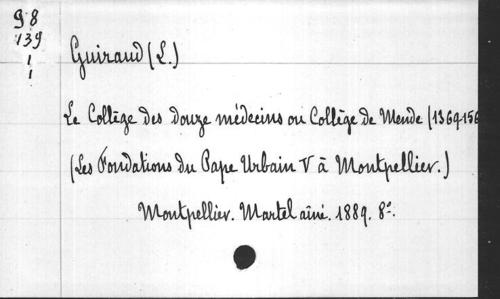 98
139
1
1
Guiraud (L.)
Le Collège des douze médecins ou Collège de Mende (1369-156
(Les Fondations du Pape Urbain V à Montpellier.)
Montpellier. Martel aîné. 1889. 8º.